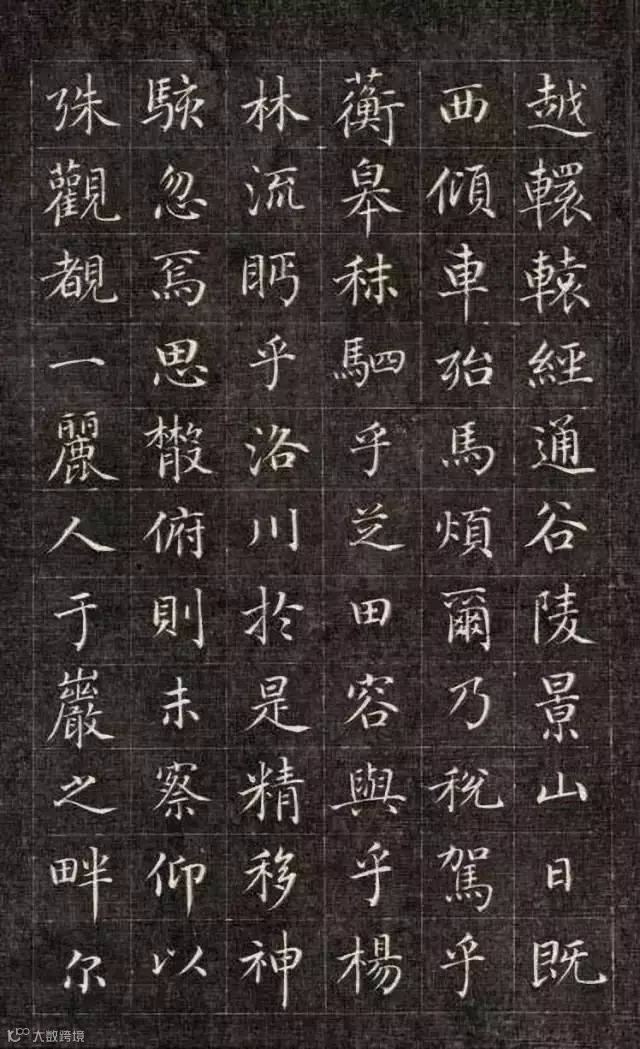 越轘轅經通谷陵景山日既
西傾車殆馬煩爾乃稅駕乎
蘅皋秣駟乎芝田容與乎楊
林流眄乎洛川於是精移神
駭忽焉思散俯則未察仰以
殊觀覩一麗人于巖之畔尔
大数跨境